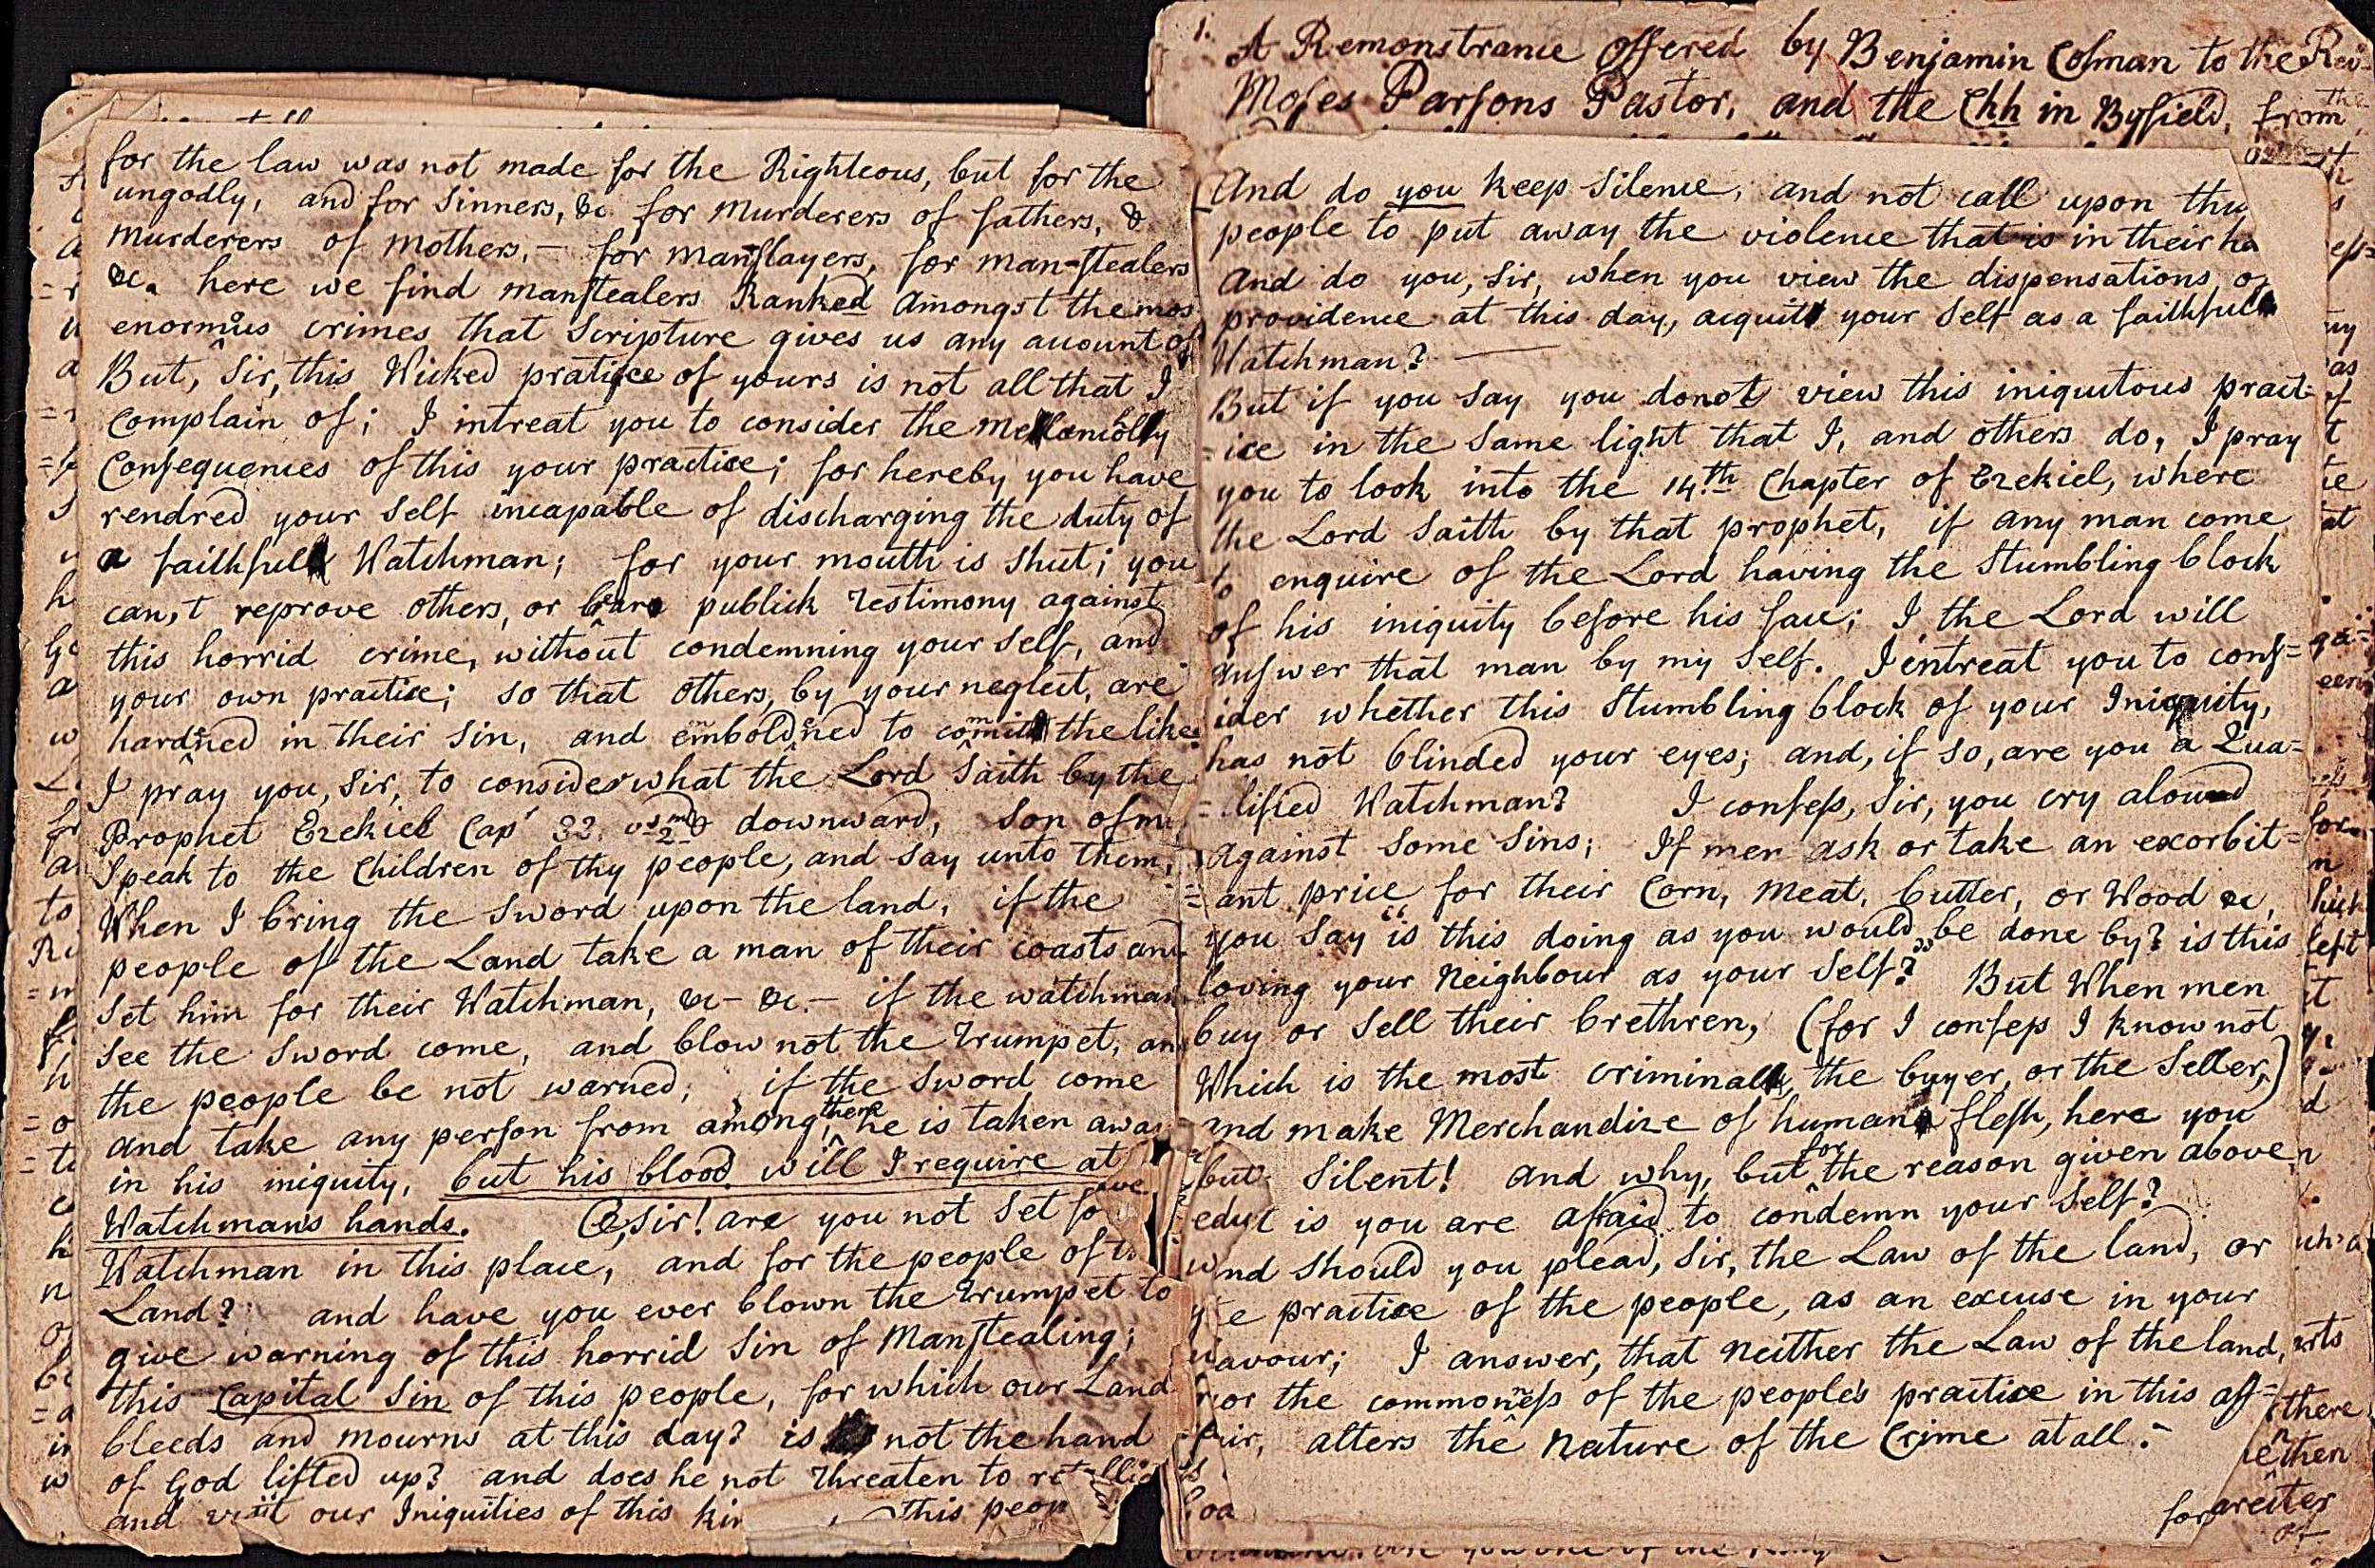 1. A Remonstrance offered by Benjamin Colman to the Rev
Moses Parsons Pastor, and the Chh in Byfield, from the
for the law was not made for the Righteous, but for the
ungodly, and for Sinners, &c for Murderers of fathers, &
Murderers of Mothers,— for manslayers, for man-stealers
&c. here we find manstealers Ranked Amongst the mos
enormous crimes that Scripture gives us any acount of
But, Sir, this Wicked pratice of yours is not all that I
Complain of; I intreat you to consider the mellancolly
Consequences of this your practice; for hereby you have
rendred your Self incapable of discharging the duty of
a faithfull Watchman; for your mouth is shut; you
can,t reprove others, or bear publick Testimony against
this horrid crime, without condemning your Self, and
your own practice; so that others, by your neglect, are
hardned in their Sin, and emboldned to commit the like
I pray you, Sir, to consider what the Lord Saith by the
Prophet Ezekiel Cap' 33. vs 2nd & downward, Son of m
Speak to the Children of thy people, and Say unto them,
When I bring the Sword upon the land, if the
people of the Land take a man of their coasts and
Set him for their Watchman, &c— &c.— if the watchman
See the Sword come, and blow not the Trumpet, an
the people be not warned; if the Sword come
and take any person from among them he is taken awa
in his iniquity, but his blood will I require at
Watchmans hands. O, Sir! are you not Set fo
Watchman in this place, and for the people of th
Land? and have you ever blown the Trumpet to
give warning of this horrid Sin of Manstealing;
this Capital Sin of this people, for which our Land
bleeds and mourns at this day? is not the hand
of God lifted up? and does he not Threaten to
and visit our Iniquities of this kin this peop
And do you keep Silence, and not call upon thy
people to put away the violence that is in their ha
And do you, Sir, when you view the dispensations of
providence at this day, acquitt your Self as a faithfull
Watchman? —
But if you Say you do not view this iniquitous pract=
=ice in the Same light that I, and others do, I pray
you to look into the 14th Chapter of Ezekiel, where
the Lord Saith by that prophet, if any man come
to enquire of the Lord having the Stumbling block
of his iniquity before his face; I the Lord will
answer that man by my Self. I entreat you to cons=
ider whether this Stumbling block of your Iniquity,
has not blinded your eyes; and, if so, are you a Qua=
=lified Watchman? I confess, Sir, you cry aloud
against Some Sins; If men ask or take an exorbit=
=ant price for their Corn, meat, butter, or Wood &c,
you Say "is this doing as you would be done by? is this
loving your Neighbour as your Self?" But When men
buy or Sell their brethren, (for I confess I know not
Which is the most criminall, the buyer, or the Seller,)
and make Merchandize of human flesh, here you
but Silent! and why, but for the reason given above
is you are afraid to condemn your Self?
and Should you plead, Sir, the Law of the land, or
e practice of the people, as an excuse in your
avour; I answer, that Neither the Law of the land,
or the commonness of the people's practice in this aff=
air, alters the Nature of the Crime at all.—